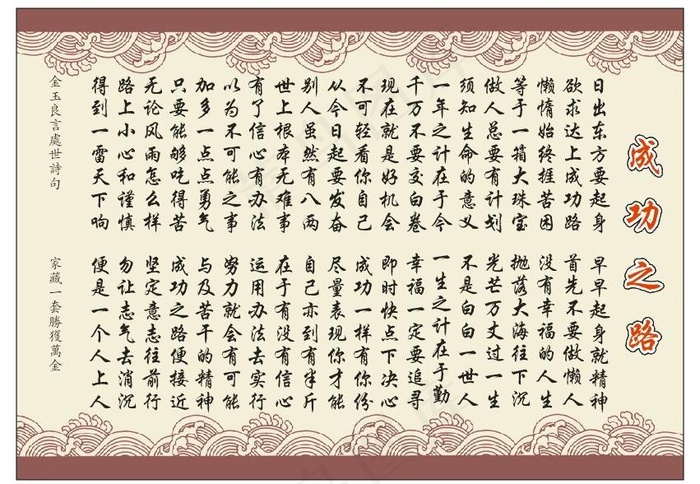 成功之路
日出东方要起身 早早起身就精神
欲求达上成功路 首先不要做懒人
懒惰始终捱苦困 没有幸福的人生
等于一箱大珠宝 抛落大海往下沉
做人总要有计划 光芒万丈过一生
须知生命的意义 不是白白一世人
一年之计在于今 一生之计在于勤
千万不要交白卷 幸福一定要追寻
现在就是好机会 即时快点下决心
不可轻看你自己 成功一样有你份
从今日起要发奋 尽量表现你才能
别人虽然有八两 自己亦到有半斤
世上根本无难事 在于有没有信心
有了信心有办法 运用办法去实行
以为不可能之事 努力就会有可能
加多一点点勇气 与及苦干的精神
只要能够吃得苦 成功之路便接近
无论风雨怎么样 坚定意志往前行
路上小心和谨慎 勿让志气去消沉
得到一雷天下响 便是一个人上人
金玉良言處世詩句 家藏一套勝獲萬金